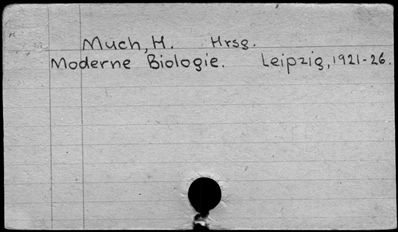 Much, H. Hrsg.
Moderne Biologie. Leipzig, 1921-26.